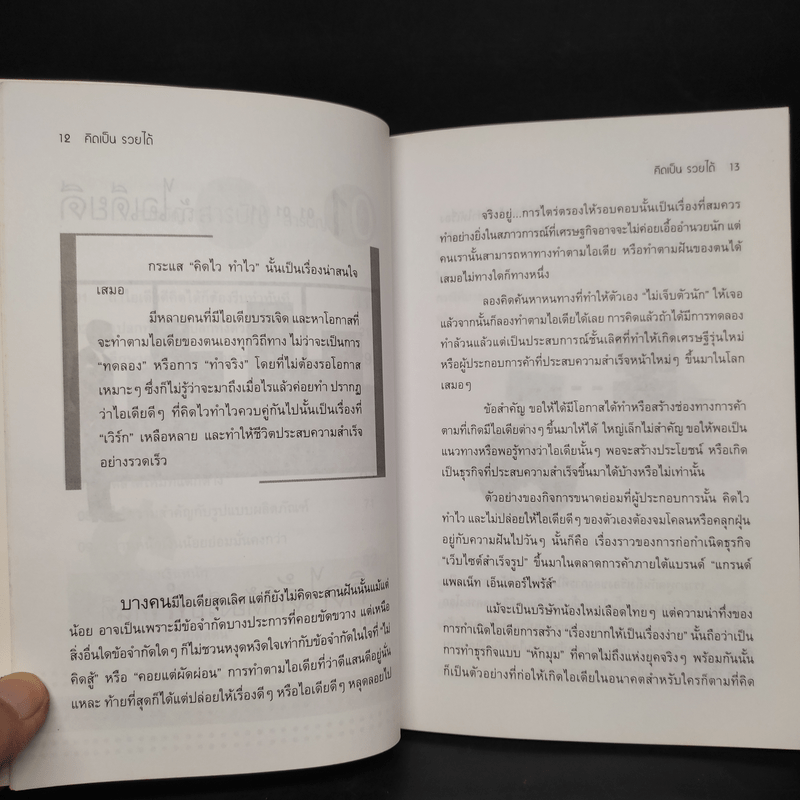 12 คิดเป็น รวยได้
กระแส “คิดไว ทำไว” นั้นเป็นเรื่องน่าสนใจ
เสมอ
มีหลายคนที่มีไอเดียบรรเจิด และหาโอกาสที่
จะทำตามไอเดียของตนเองทุกวิถีทาง ไม่ว่าจะเป็นการ
“ทดลอง” หรือการ “ทำจริง” โดยที่ไม่ต้องรอโอกาส
เหมาะๆ ซึ่งก็ไม่รู้ว่าจะมาถึงเมื่อไรแล้วค่อยทำ ปรากฏ
ว่าไอเดียดีๆ ที่คิดไวทำไวควบคู่กันไปนั้นเป็นเรื่องที่
“เวิร์ก” เหลือหลาย และทำให้ชีวิตประสบความสำเร็จ
อย่างรวดเร็ว
บางคนมีไอเดียสุดเลิศ แต่ก็ยังไม่คิดจะสานฝันนั้นแม้แต่
น้อย อาจเป็นเพราะมีข้อจำกัดบางประการที่คอยขัดขวาง แต่เหนือ
สิ่งอื่นใดข้อจำกัดใดๆ ก็ไม่ชวนหงุดหงิดใจเท่ากับข้อจำกัดในใจที่ “ไม่
คิดสู้” หรือ “คอยแต่ผัดผ่อน” การทำตามไอเดียที่ว่าดีแสนดีอยู่นั่น
แหละ ท้ายที่สุดก็ได้แต่ปล่อยให้เรื่องดีๆ หรือไอเดียดีๆ หลุดลอยไป
คิดเป็น รวยได้ 13
จริงอยู่...การไตร่ตรองให้รอบคอบนั้นเป็นเรื่องที่สมควร
ทำอย่างยิ่งในสภาวการณ์ที่เศรษฐกิจอาจจะไม่ค่อยเอื้ออำนวยนัก แต่
คนเรานั้นสามารถหาทางทำตามไอเดีย หรือทำตามฝันของตนได้
เสมอไม่ทางใดก็ทางหนึ่ง
ลองคิดค้นหาหนทางที่ทำให้ตัวเอง “ไม่เจ็บตัวนัก” ให้เจอ
แล้วจากนั้นก็ลองทำตามไอเดียได้เลย การคิดแล้วถ้าได้มีการทดลอง
ทำล้วนแล้วแต่เป็นประสบการณ์ชั้นเลิศที่ทำให้เกิดเศรษฐีรุ่นใหม่
หรือผู้ประกอบการค้าที่ประสบความสำเร็จหน้าใหม่ๆ ขึ้นมาในโลก
เสมอๆ
ข้อสำคัญ ขอให้ได้มีโอกาสได้ทำหรือสร้างช่องทางการค้า
ตามที่เกิดมีไอเดียต่างๆ ขึ้นมาให้ได้ ใหญ่เล็กไม่สำคัญ ขอให้พอเป็น
แนวทางหรือพอรู้ทางว่าไอเดียนั้นๆ พอจะสร้างประโยชน์ หรือเกิด
เป็นธุรกิจที่ประสบความสำเร็จขึ้นมาได้บ้างหรือไม่เท่านั้น
ตัวอย่างของกิจการขนาดย่อมที่ผู้ประกอบการนั้น คิดไว
ทำไว และไม่ปล่อยให้ไอเดียดีๆ ของตัวเองต้องจมโคลนหรือคลุกฝุ่น
อยู่กับความฝันไปวันๆ นั้นก็คือ เรื่องราวของการก่อกำเนิดธุรกิจ
“เว็บไซต์สำเร็จรูป” ขึ้นมาในตลาดการค้าภายใต้แบรนด์ “แกรนด์
แพลเน็ท เอ็นเตอร์ไพรัส์”
แม้จะเป็นบริษัทน้องใหม่เลือดไทยๆ แต่ความน่าทึ่งของ
การกำเนิดไอเดียการสร้าง “เรื่องยากให้เป็นเรื่องง่าย” นั้นถือว่าเป็น
การทำธุรกิจแบบ “หักมุม” ที่คาดไม่ถึงแห่งยุคจริงๆ พร้อมกันนั้น
ก็เป็นตัวอย่างที่ก่อให้เกิดไอเดียในอนาคตสำหรับใครก็ตามที่คิด